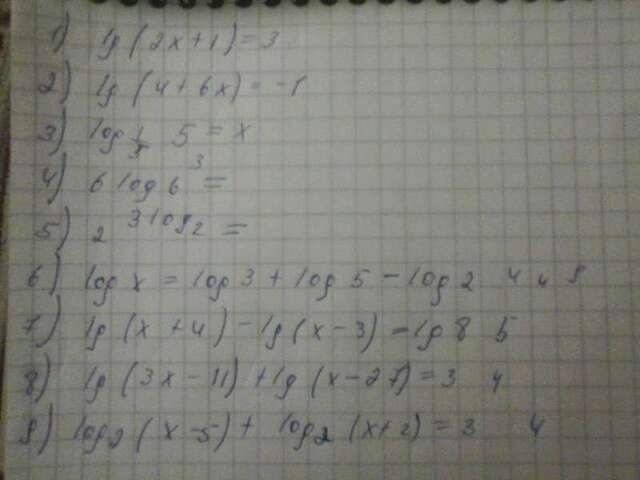 1) lg(2x+1)=3
2) lg(4+6x)=-1
3) log 1/3 5 = x
4) 6 log 6 3 =
5) 2 3log2 =
6) log x = log 3 + log 5 - log 2 4
7) lg(x+4)-lg(x-3)=lg 8 5
8) lg(3x-11)+lg(x-27)=3 4
9) log2(x-5)+ log2(x+2)=3 4